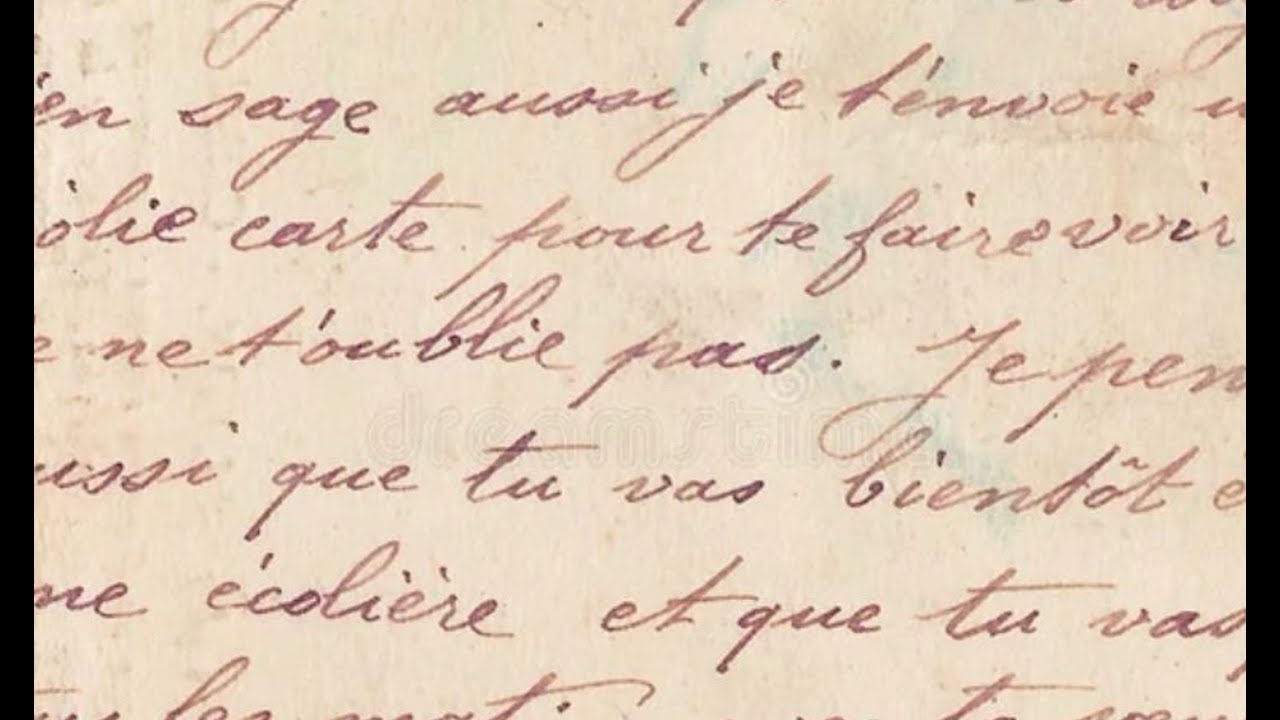 en sage aussi je t'envoie u
olie carte pour te faire voir
e ne t'oublie pas. Je pen
dreamstime
ussi que tu vas bientôt ê
ne écolière et que tu vas